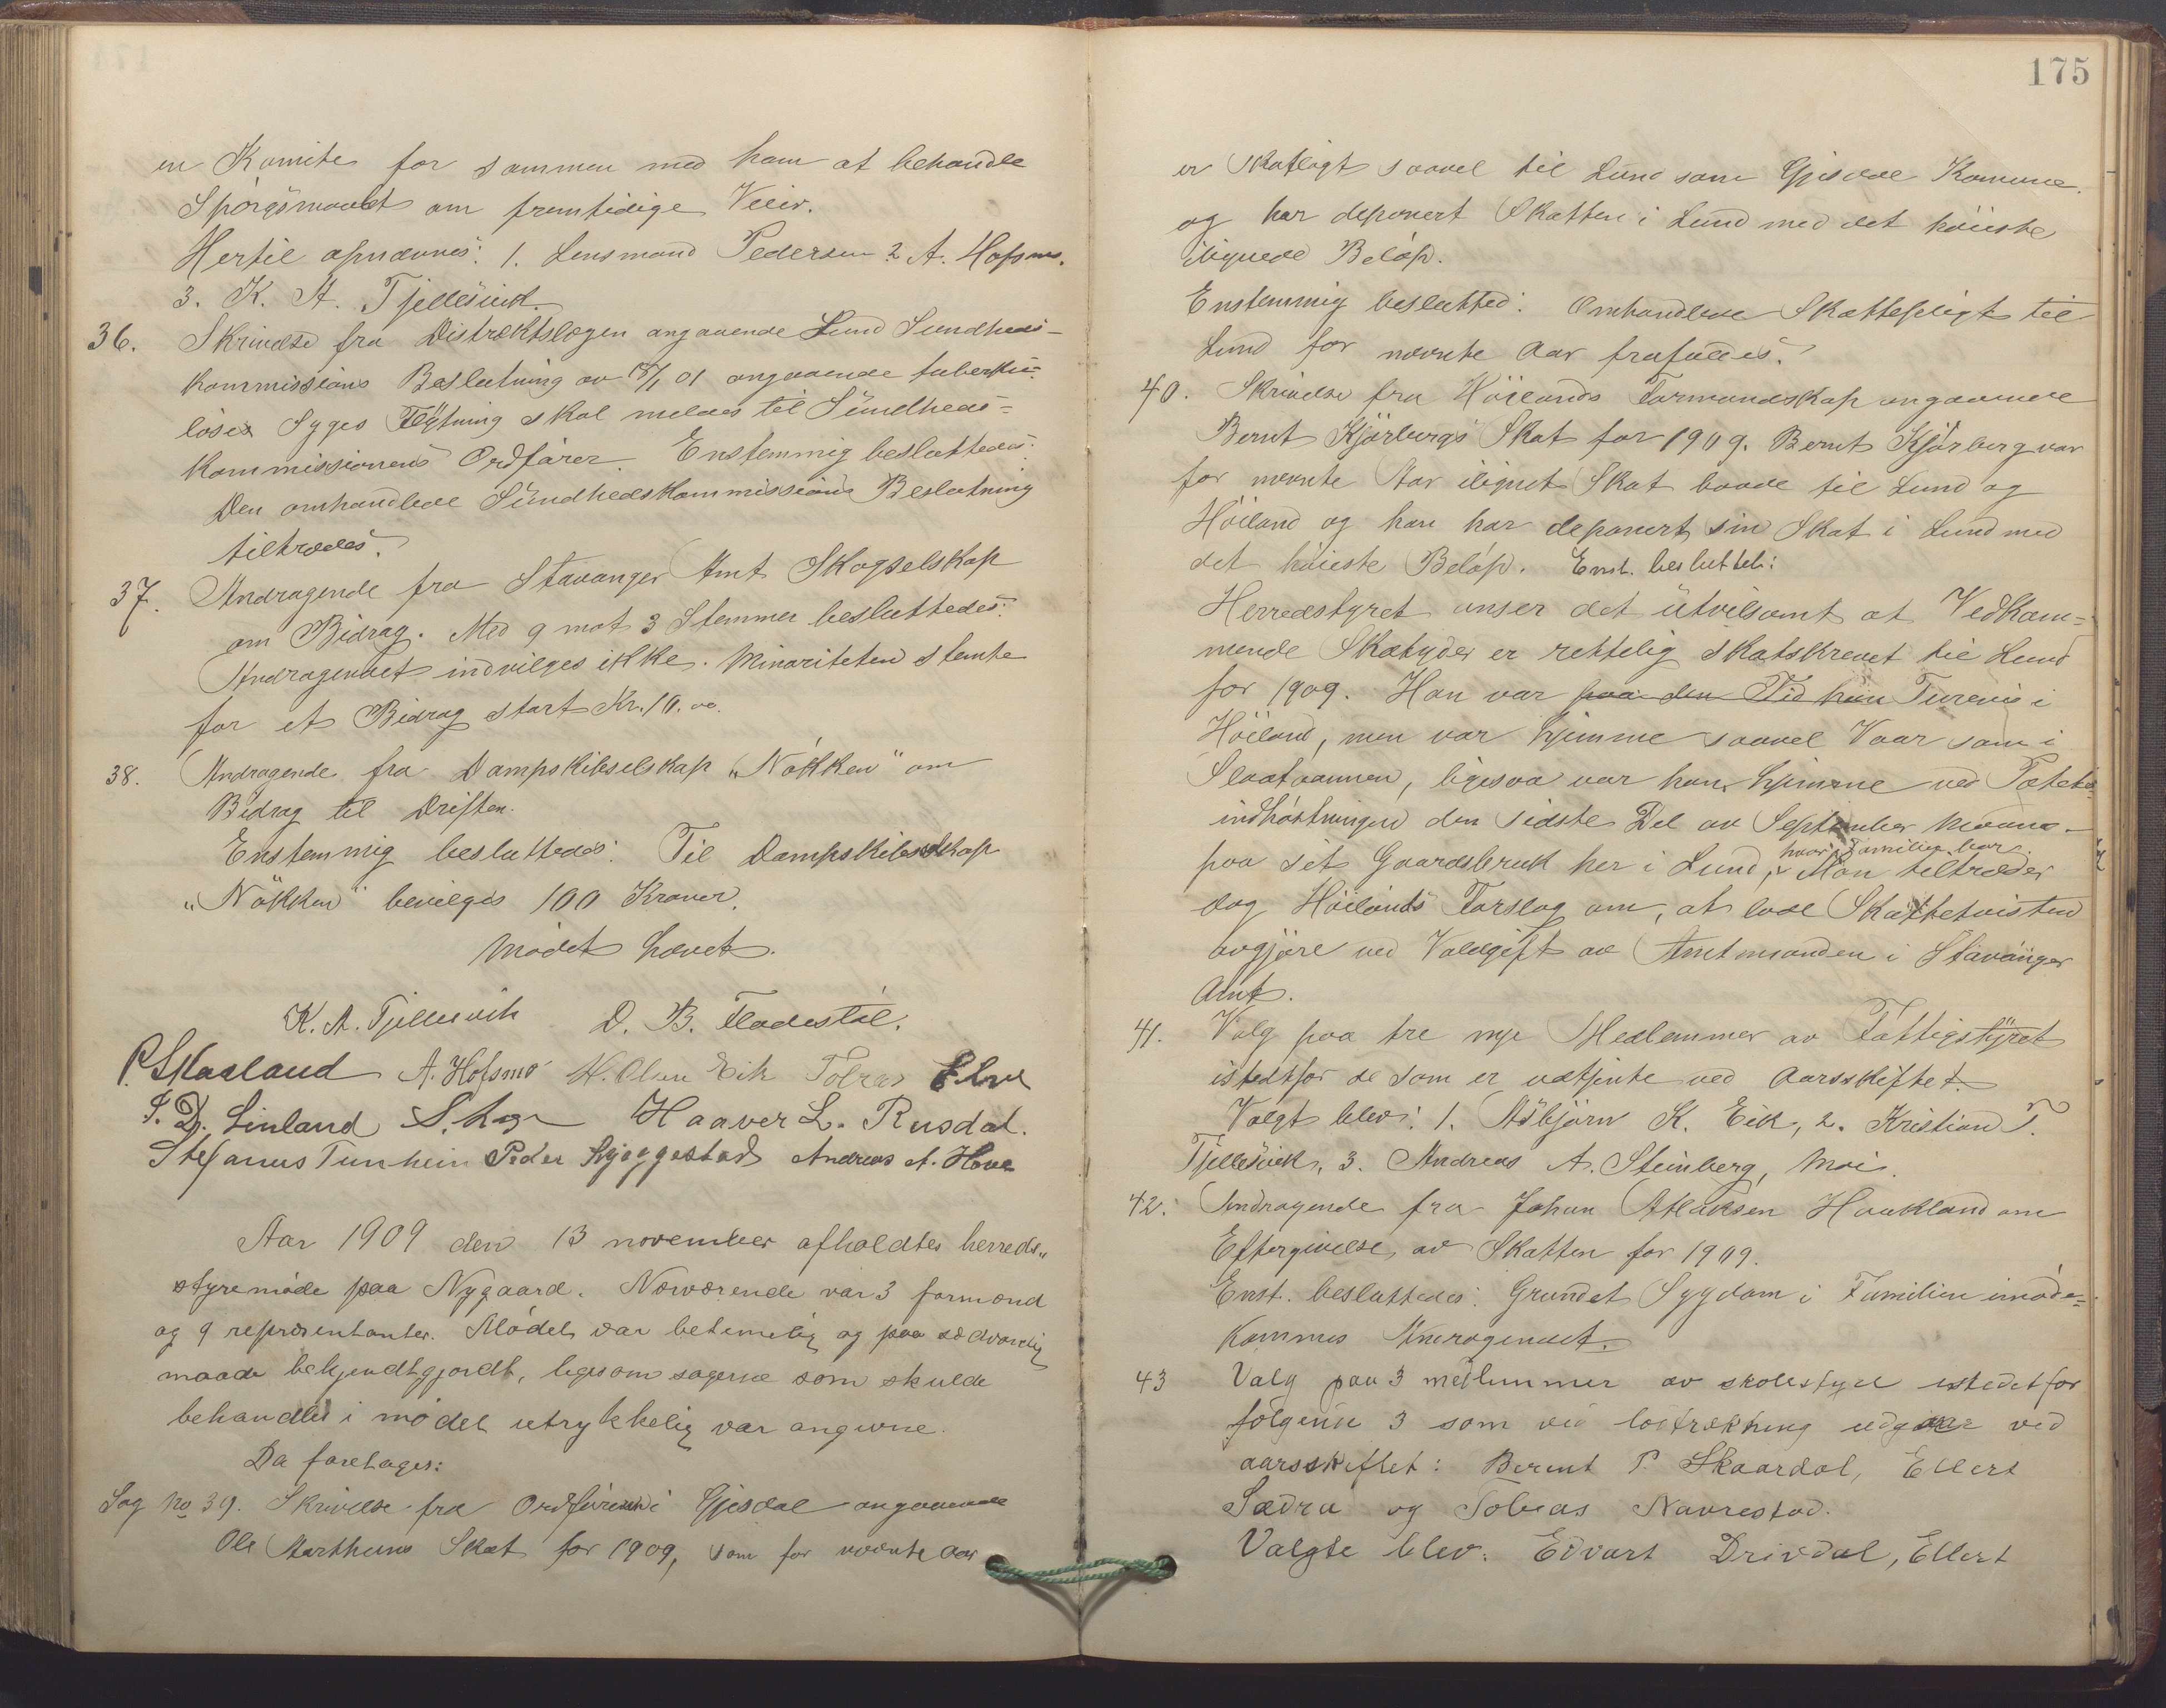 en Komite for sammen med ham at behandle
Spörgsmaalet om fremtidige Veier.
Hertil opnævnes: 1. Lensmand Pedersen 2 A. Hofsmo.
3. K. A. Tjellesvik.
36. Skrivelse fra Distriktslægen angaaende Lund Sundheds-
kommissions Beslutning av 18/1 01 angaaende tuberku-
löses Syges Flytning skal meldes til Sundheds-
kommissionens Ordförer. Enstemmig besluttedes:
Den omhandlede Sundhedskommissions Beslutning
tiltrædes.
37. Andragende fra Stavanger Amt Skogselskap
om Bidrag. Med 9 mot 3 Stemmer besluttedes:
Andragendet indvilges ikke. Minoriteten stemte
for et Bidrag stort Kr. 10.00.
38. Andragende fra Dampskibselskap "Nökken" om
Bidrag til Driften.
Enstemmig besluttedes: Til Dampskibselskap
"Nökken" bevilges 100 Kroner.
Mödet hævet.
K. A. Tjellesvik D. B. Fladestöl.
P. Skaaland A. Hofsmo H. Olsen Eik Tobias Elve
T. D. Linland S. Haaver L. Rusdal.
Stefanus Tunheim Peder Skjeggestad Andreas A. Hove
Aar 1909 den 13 november afholdtes herreds„
styremöde paa Nygaard. Nærværende var 3 formænd
og 9 repræsentanter. Mödet var betimelig og paa sædvanlig
maade bekjendtgjordt, ligesom sagerne som skulde
behandles i mödet utrykkelig var angivne.
Da foretages:
Sag No 39. Skrivelse fra Ordföreren i Gjesdal angaaende
Ole Aarthuns Skat for 1909, som for nævnte Aar
175
er skatlagt saavel til Lund som Gjesdal Komune.
og har deponert Skatten i Lund med det höieste
ilignede Belöp.
Enstemmig beslutted: Omhandlede Skattepligt til
Lund for nævnte Aar frafaldes.
40. Skrivelse fra Höilands Formandskap angaaende
Bernt Kjörbergs Skat for 1909. Bernt Kjörberg var
for nævnte Aar ilignet Skat baade til Lund og
Höiland og han har deponert sin Skat i Lund med
det höieste Belöp. Enst. besluttet:
Herredstyret anser det utvilsomt at Vedkom-
mende Skatyder er rettelig skatskrevet til Lund
for 1909. Han var paa den Tid hun Turevis i
Höiland, men var hjemme saavel Vaar som i
Slaataannen, ligesaa var han hjemme ved Potet-
indhöstningen den sidste Del av September Maaned
paa sit Gaardsbruk her i Lund, hvor Familien bor. Man tiltræder
dog Höilands Forslag om, at lade Skattetvisten
avgjöre ved Voldgift av Amtmanden i Stavanger
Amt.
41. Valg paa tre nye Medlemmer av Fattigstyret
istedtfor de som er uttjente ved Aarsskiftet.
Valgt blev: 1. Asbjörn K. Eik, 2. Kristian T.
Tjellesvik, 3. Andreas A. Steinberg, Moi.
42. Andragende fra Johan Atlaksen Haukland om
Eftergivelse av Skatten for 1909.
Enst. besluttedes: Grundet Sygdom i Familien imöde-
kommes Andragendet.
43 Valg paa 3 medlemmer av skolestyret istedetfor
fölgende 3 som ved lodtrækning udgaar ved
aarsskiftet: Berent P. Skaardal, Ellert
Sædra og Tobias Navrestad.
Valgte blev: Edvart Drivdal, Ellert